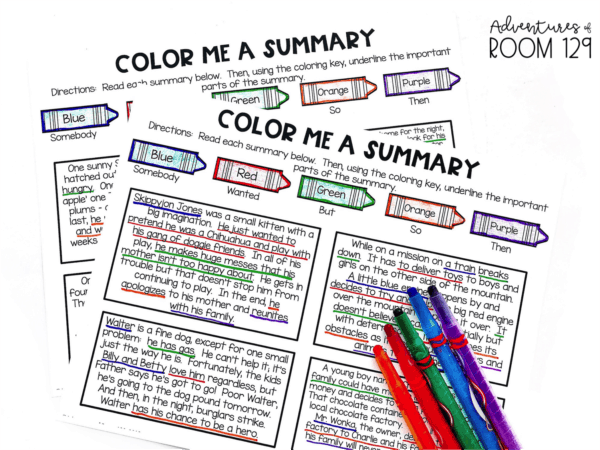 Adventures of
ROOM 129
COLOR ME A SUMMARY
Directions: Read each summary below. Then, using the coloring key, underline the important
parts of the summary.
Blue
Green
Orange
Purple
Somebody
So
Then
One sunny
hatched ou
hungry. On
apple' one
plums -
last, he
and w
weeks
fou
Th
ome for the night,
look for his
COLOR ME A SUMMARY
Directions: Read each summary below. Then, using the coloring key, underline the important
parts of the summary.
Blue
Red
Green
Orange
Purple
Somebody
Wanted
But
So
Then
Skippyjon Jones was a small kitten with a
big imagination. He just wanted to
pretend he was a Chihuahua and play with
his gang of doggie friends. In all of his
play, he makes huge messes that his
mother isn't too happy about. He gets in
trouble but that doesn't stop him from
continuing to play. In the end, he
apologizes to his mother and reunites
with his family.
While on a mission on a train breaks
down. It has to deliver toys to boys and
girls on the other side of the mountain.
A little blue engine opens by and
decides to try and big red engine
over the mountain it over. It
doesn't believe ually but
with determ es its
obstacles as it s and
anim
Walter is a fine dog, except for one small
problem: he has gas. He can't help it; it's
just the way he is. Fortunately, the kids
Billy and Betty love him regardless, but
Father says he's got to go! Poor Walter,
he's going to the dog pound tomorrow.
And then, in the night, burglars strike.
Walter has his chance to be a hero.
A young boy nam
family could have m
money and decides to
That chocolate contained
local chocolate factory.
Mr. Wonka, the owner, de
factory to Charlie and his f
his family will never